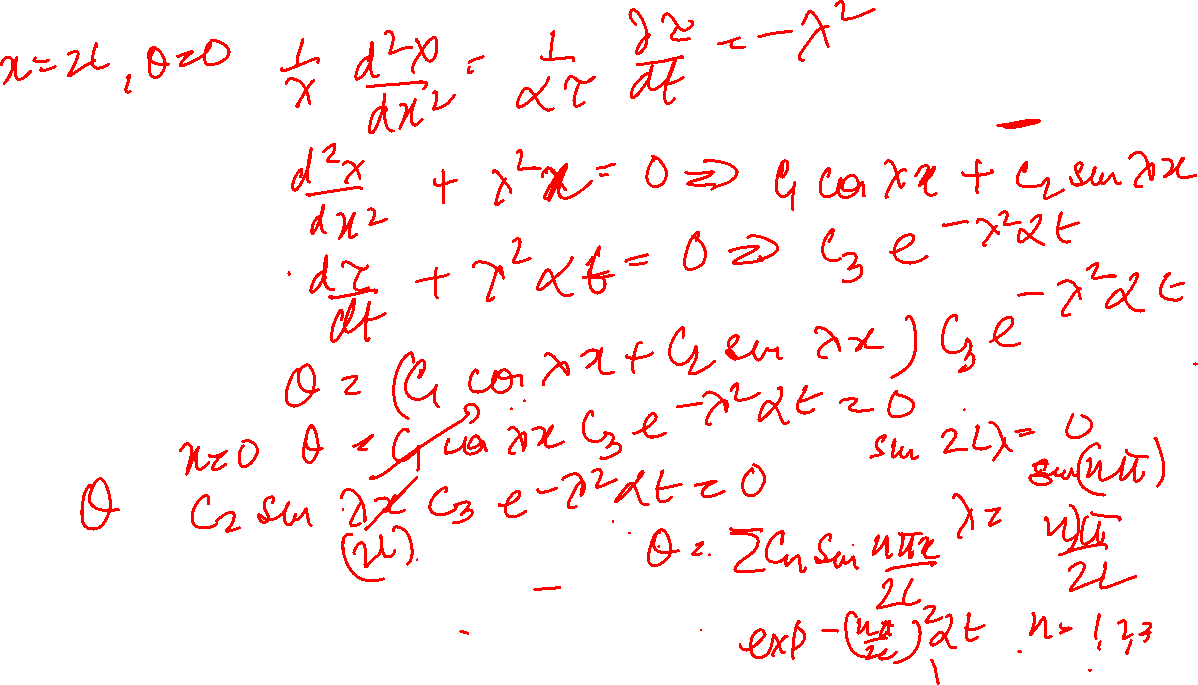 x=2L, θ=0 1/X d²X/dx² = 1/ατ ∂τ/dt = -λ²
d²x/dx² + λ²x = 0 ⇒ C₁ cos λx + C₂ sin λx
dτ/dt + λ²αt = 0 ⇒ C₃ e^(-λ²αt)
θ = (C₁ cos λx + C₂ sin λx) C₃ e^(-λ²αt)
x=0 θ = C₁ cos λx C₃ e^(-λ²αt) = 0
sin 2Lλ = 0
θ C₂ sin λx C₃ e^(-λ²αt) = 0
(2L)
sin(nπ)
λ = nπ/2L
θ = Σ Cn sin nπx/2L
exp -(nπ/2L)² αt n = 1, 2, 3